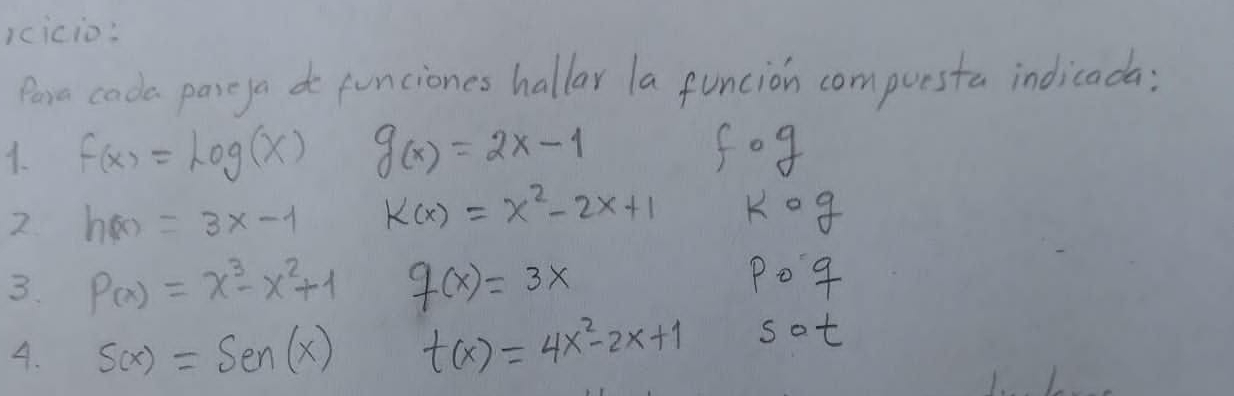 icicio:
Para cada pareja de funciones hallar la función compuesta indicada:
1. f(x) = Log(x) g(x) = 2x-1 f∘g
2. h(x) = 3x-1 K(x) = x²-2x+1 K∘g
3. P(x) = x³-x²+1 q(x) = 3x P∘q
4. S(x) = Sen(x) t(x) = 4x²-2x+1 s∘t